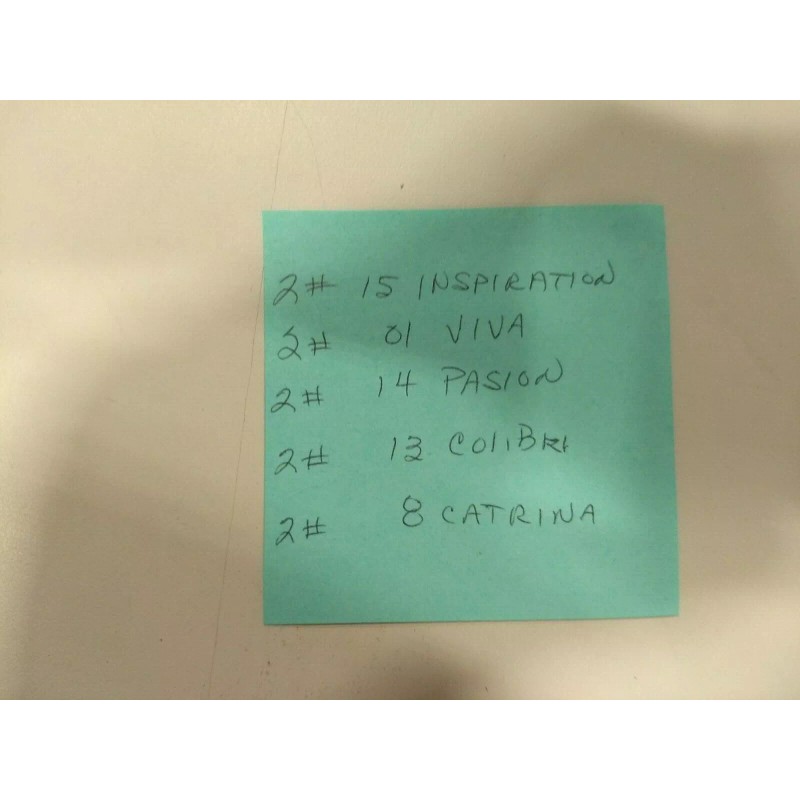 2# 15 INSPIRATION
2# 01 VIVA
2# 14 PASION
2# 13 COLIBRI
2# 8 CATRINA